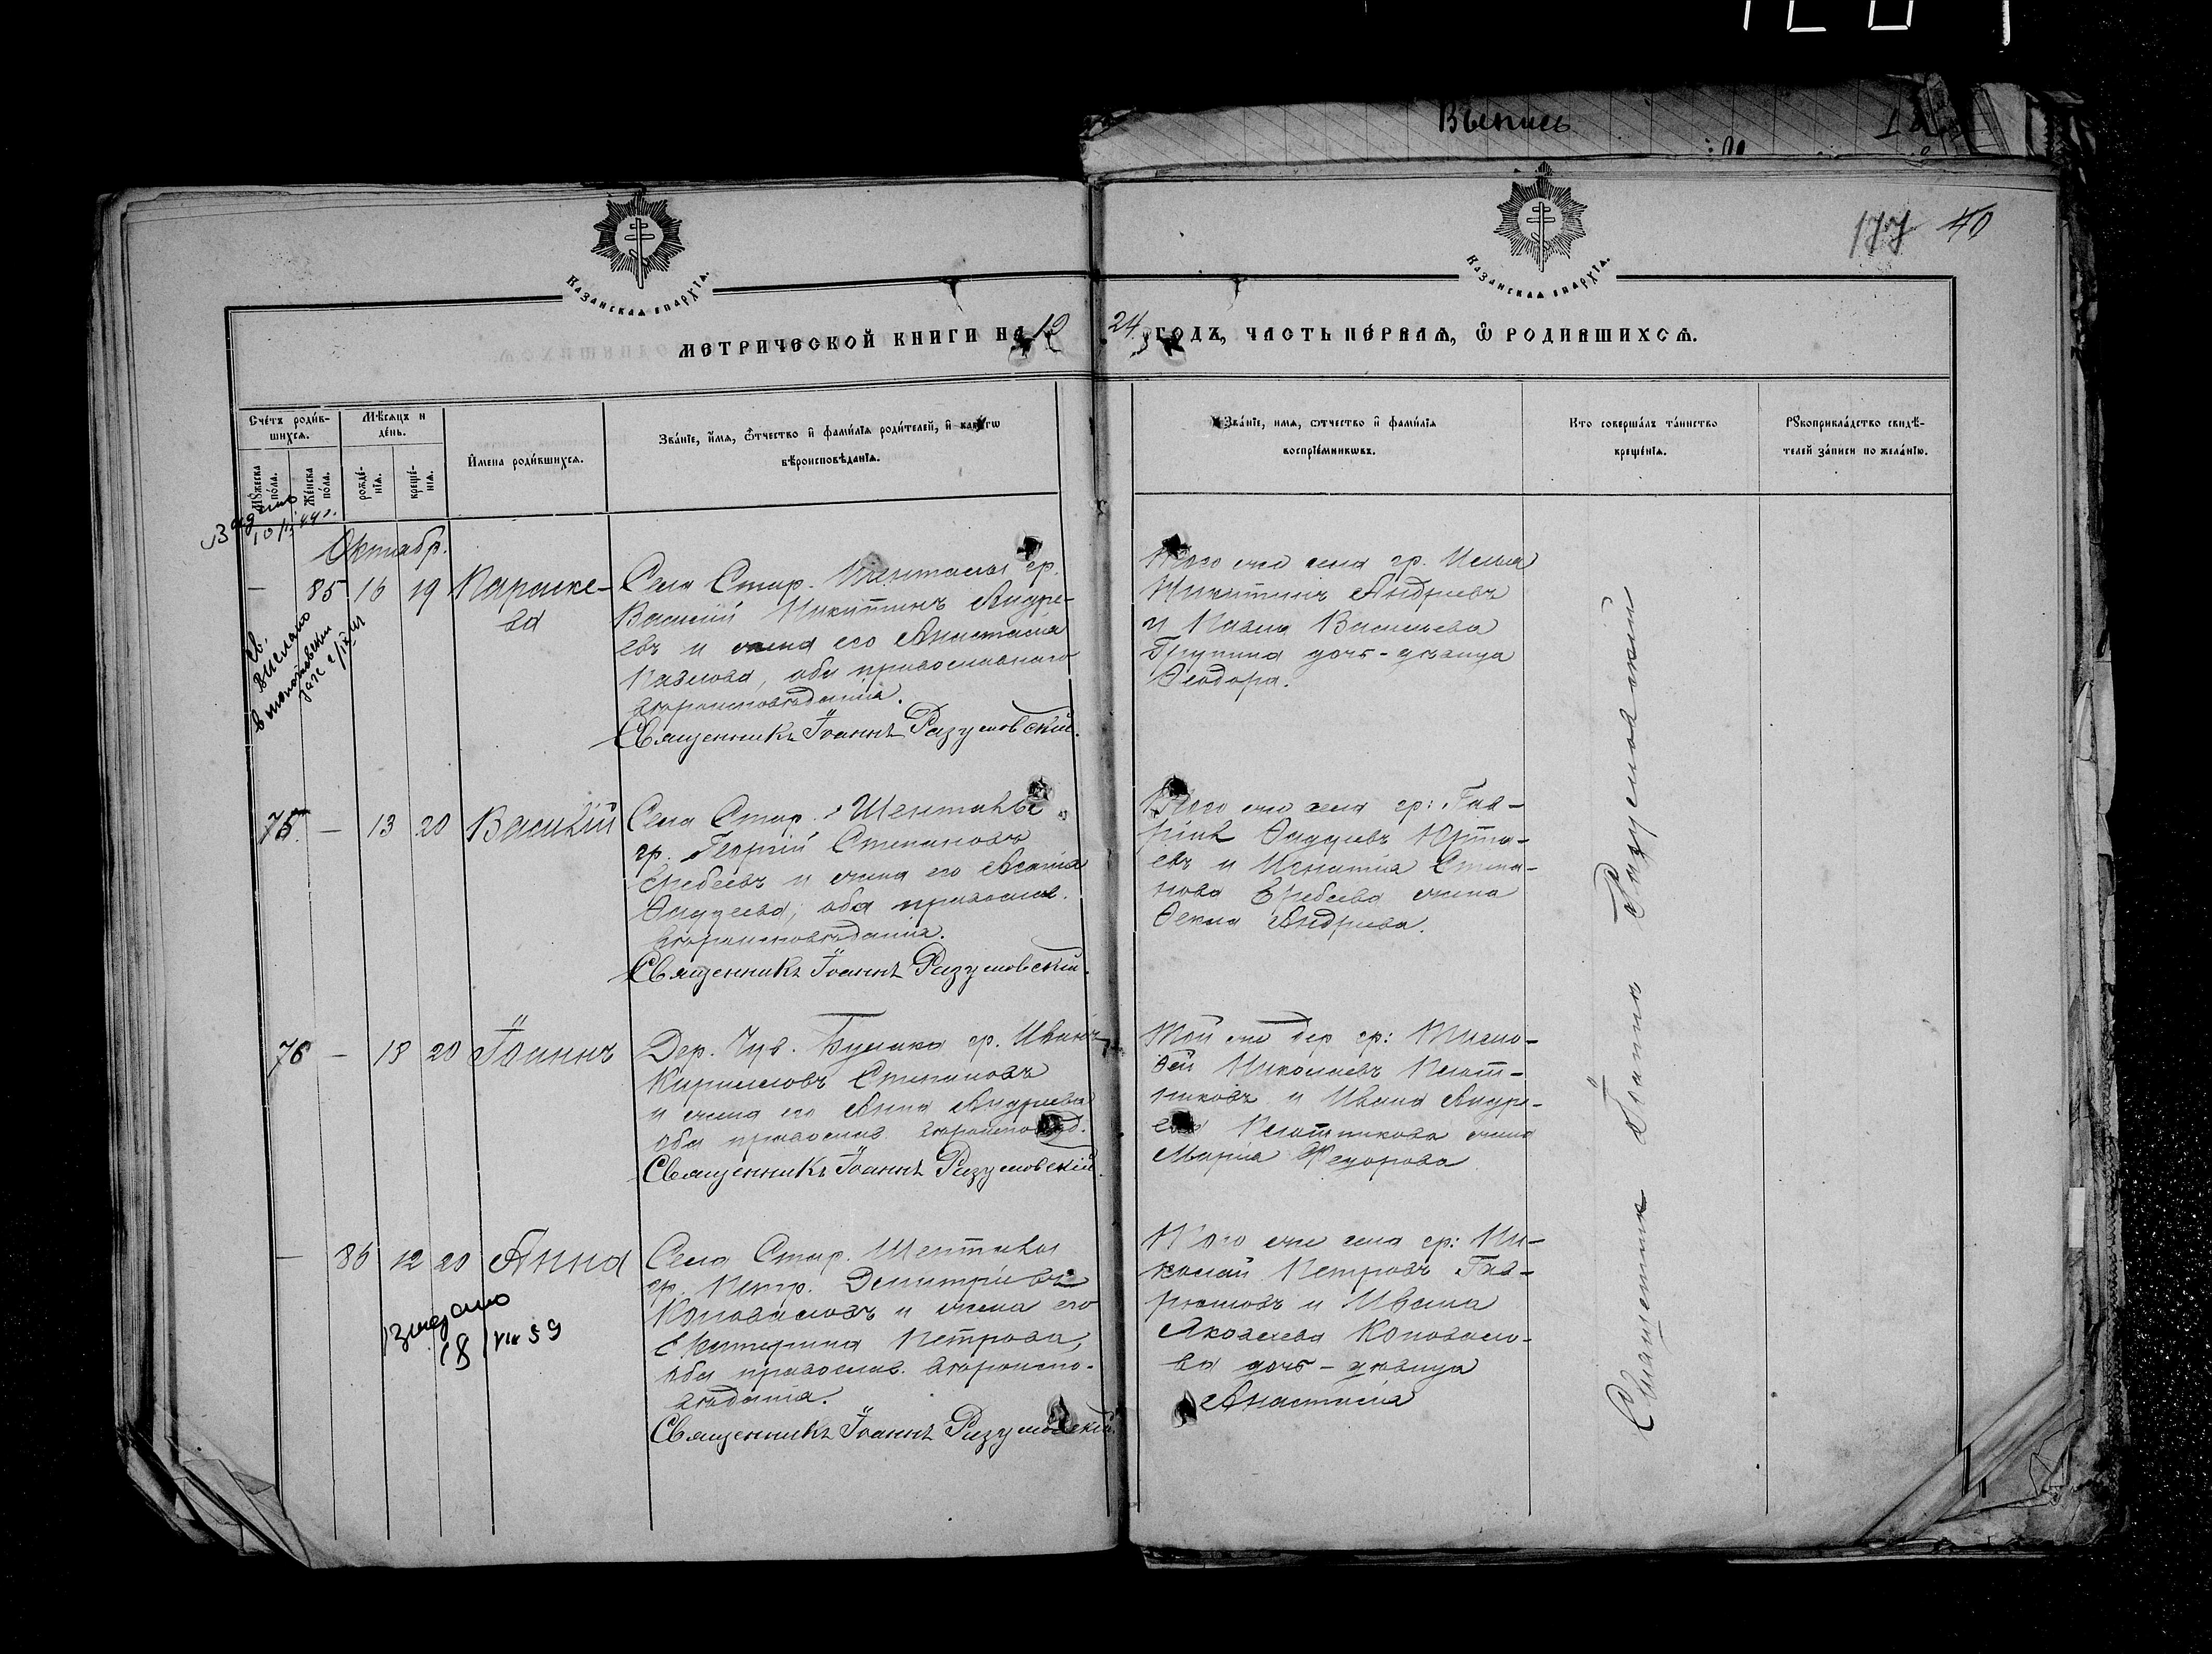 Выпись
177 40
Казанская епархїа.
Казанская епархїа.
МЕТРИЧЕСКОЙ КНИГИ НА 19 24 ГОДЪ, ЧАСТЬ ПЕРВАЯ, Ѿ РОДИВШИХСЯ.
Счетъ родив-
шихся.
Мѣсяцъ и
день.
Мужеска
пола.
Женска
пола.
рожде-
нїя.
креще-
нїя.
Имена родившихся.
Званїе, имя, отчество и фамилїя родителей, и какогω
вѣроисповѣданїя.
Званїе, имя, отчество и фамилїя
воспрїемникωвъ.
Кто совершалъ таинство
крещенїя.
Рукоприкладство свидѣ-
телей записи по желанїю.
Октябр.
— 85 16 19 Параске-
ва
Села Стар. Шенталы гр.
Василій Никитинъ Андре-
евъ и жена его Анастасія
Павлова, оба православнаго
вѣроисповѣданія.
Священникъ Іоаннъ Разумовскій.
Того же села гр. Илья
Никитинъ Андреевъ
и Павла Васильева
дочь-дѣвица
Ѳеодора.
выслано
75 — 13 20 Василій
Села Стар. Шенталы
гр. Георгій Степановъ
и жена его
Ѳаддеева, оба православ.
вѣроисповѣданія.
Священникъ Іоаннъ Разумовскій.
Того же села гр: Гав-
ріилъ Ѳаддеевъ
евъ и Игнатія Степа-
нова жена
Ѳекла Андреева.
76 — 18 20 Іоаннъ
Дер. Чув. гр. Иванъ
Кирилловъ Степановъ
и жена его Анна Андреева
оба православ. вѣроисповѣд.
Священникъ Іоаннъ Разумовскій.
Той же дер гр: Тимо-
ѳей Николаевъ Плот-
никовъ и Ивана Андре-
ева Плотникова жена
Марія Ѳедорова
— 86 12 20 Анна
Села Стар. Шенталы
гр. Петр. Димитріевъ
Коноваловъ и жена его
Екатерина Петрова,
оба православ. вѣроиспо-
вѣданія.
Священникъ Іоаннъ Разумовскій.
Того же села гр: Ни-
колай Петровъ Гав-
риловъ и Ивана
Яковлева Коновало-
ва дочь-дѣвица
Анастасія
Выдано
18/VII 59
Священникъ Іоаннъ Разумовскій